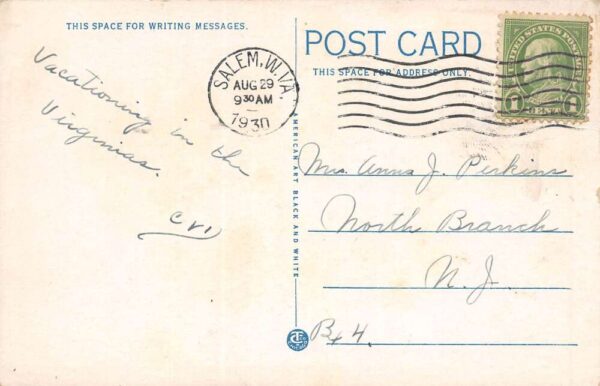 THIS SPACE FOR WRITING MESSAGES.
Vacationing in the
Virginias.
SALEM, W.VA.
AUG 29
9 30 AM
1930
AMERICAN ART BLACK AND WHITE
POST CARD
THIS SPACE FOR ADDRESS ONLY.
UNITED STATES POSTAGE
1 CENT 1
Mrs. Anna J. Perkins
North Branch
N. J.
Bx 4.